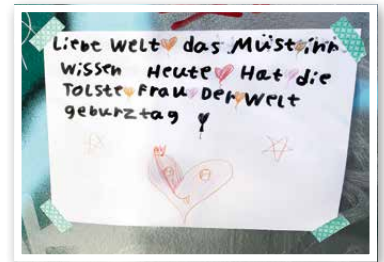 Liebe Welt das Müst ihr
wissen Heute Hat die
Tolste Frau Der Welt
geburztag !